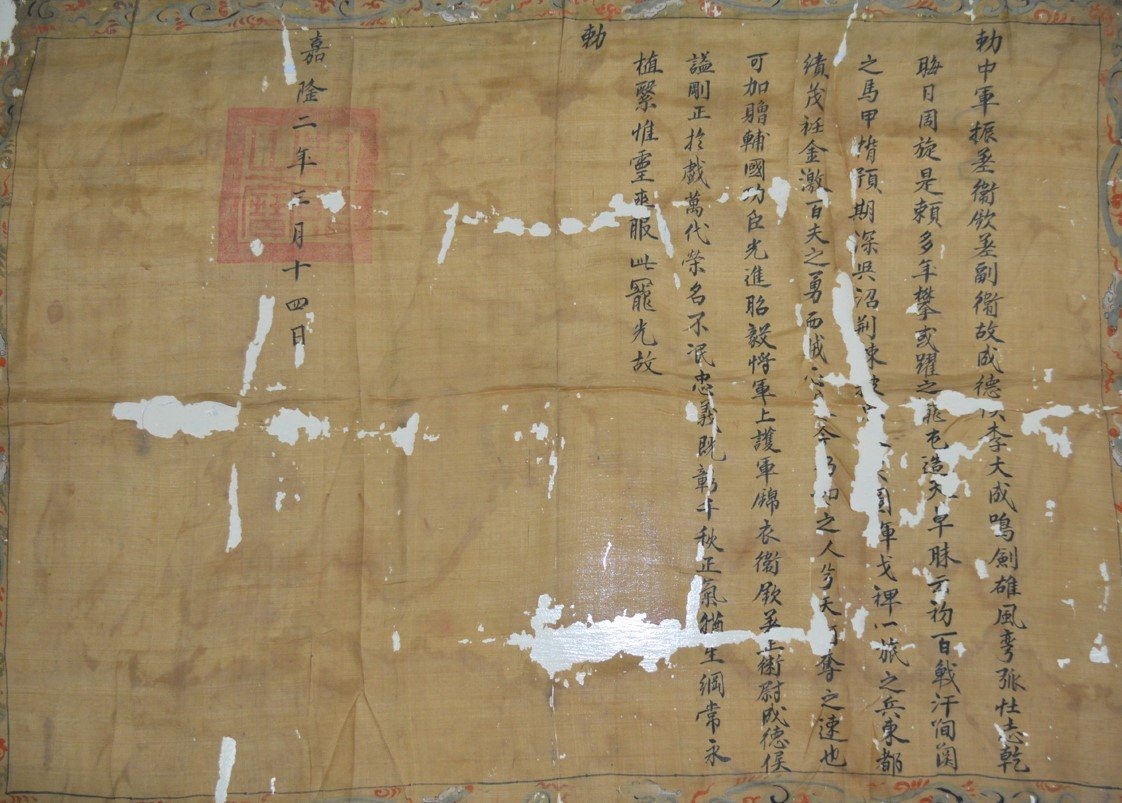 勅中軍振基衛欽差副衛故成德侯李大成鳴劍雄風弯弧壮志乾
晦日周旋是頼多年攀或躍之造天草昧云初百戰汗
之馬甲期深吳沼荆軍戈裨一旅之兵東都
績茂衽金激百夫之勇而之人兮天奪之速也
可加贈輔國功臣光進昭毅將軍上護軍錦衣衛欽差上衛尉成德侯
謚剛正於戲萬代榮名不泯忠義既彰千秋正氣猶生綱常永
植繄惟靈爽服此寵光故
勅
嘉隆二年三月十四日